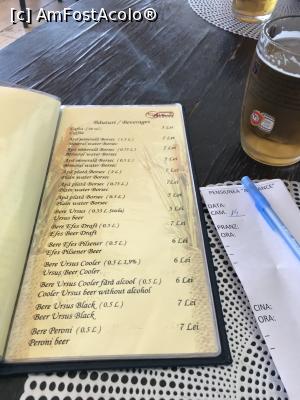 [c] AmFostAcolo®
Băuturi / Beverages
Cafea (50 ml) 5 Lei
Coffee
Apă minerală Borsec (1.5 L) 7 Lei
Mineral water Borsec
Apă minerală Borsec (0.75 L) 5 Lei
Mineral water Borsec
Apă minerală Borsec (0.5 L) 5 Lei
Mineral water Borsec
Apă plată Borsec (2 L) 7 Lei
Plain water Borsec
Apă plată Borsec (0.75 L) 7 Lei
Plain water Borsec
Apă plată Borsec (0.5 L) 5 Lei
Plain water Borsec
Bere Ursus (0.5 L Sticla) 5 Lei
Ursus beer
Bere Efes Draft (0.5 L) 7 Lei
Efes Beer Draft
Bere Efes Pilsener (0.5 L) 6 Lei
Efes Pilsener Beer
Bere Ursus Cooler (0.5 L 1,9%) 6 Lei
Ursus Beer Cooler
Bere Ursus Cooler fără alcool (0.5 L) 6 Lei
Cooler Ursus beer without alcohol
Bere Ursus Black (0.5 L) 7 Lei
Beer Ursus Black
Bere Peroni (0.5 L) 7 Lei
Peroni beer
PENSIUNEA
DATA:
CAM.
PRANZ:
ORA:
CINA:
ORA: